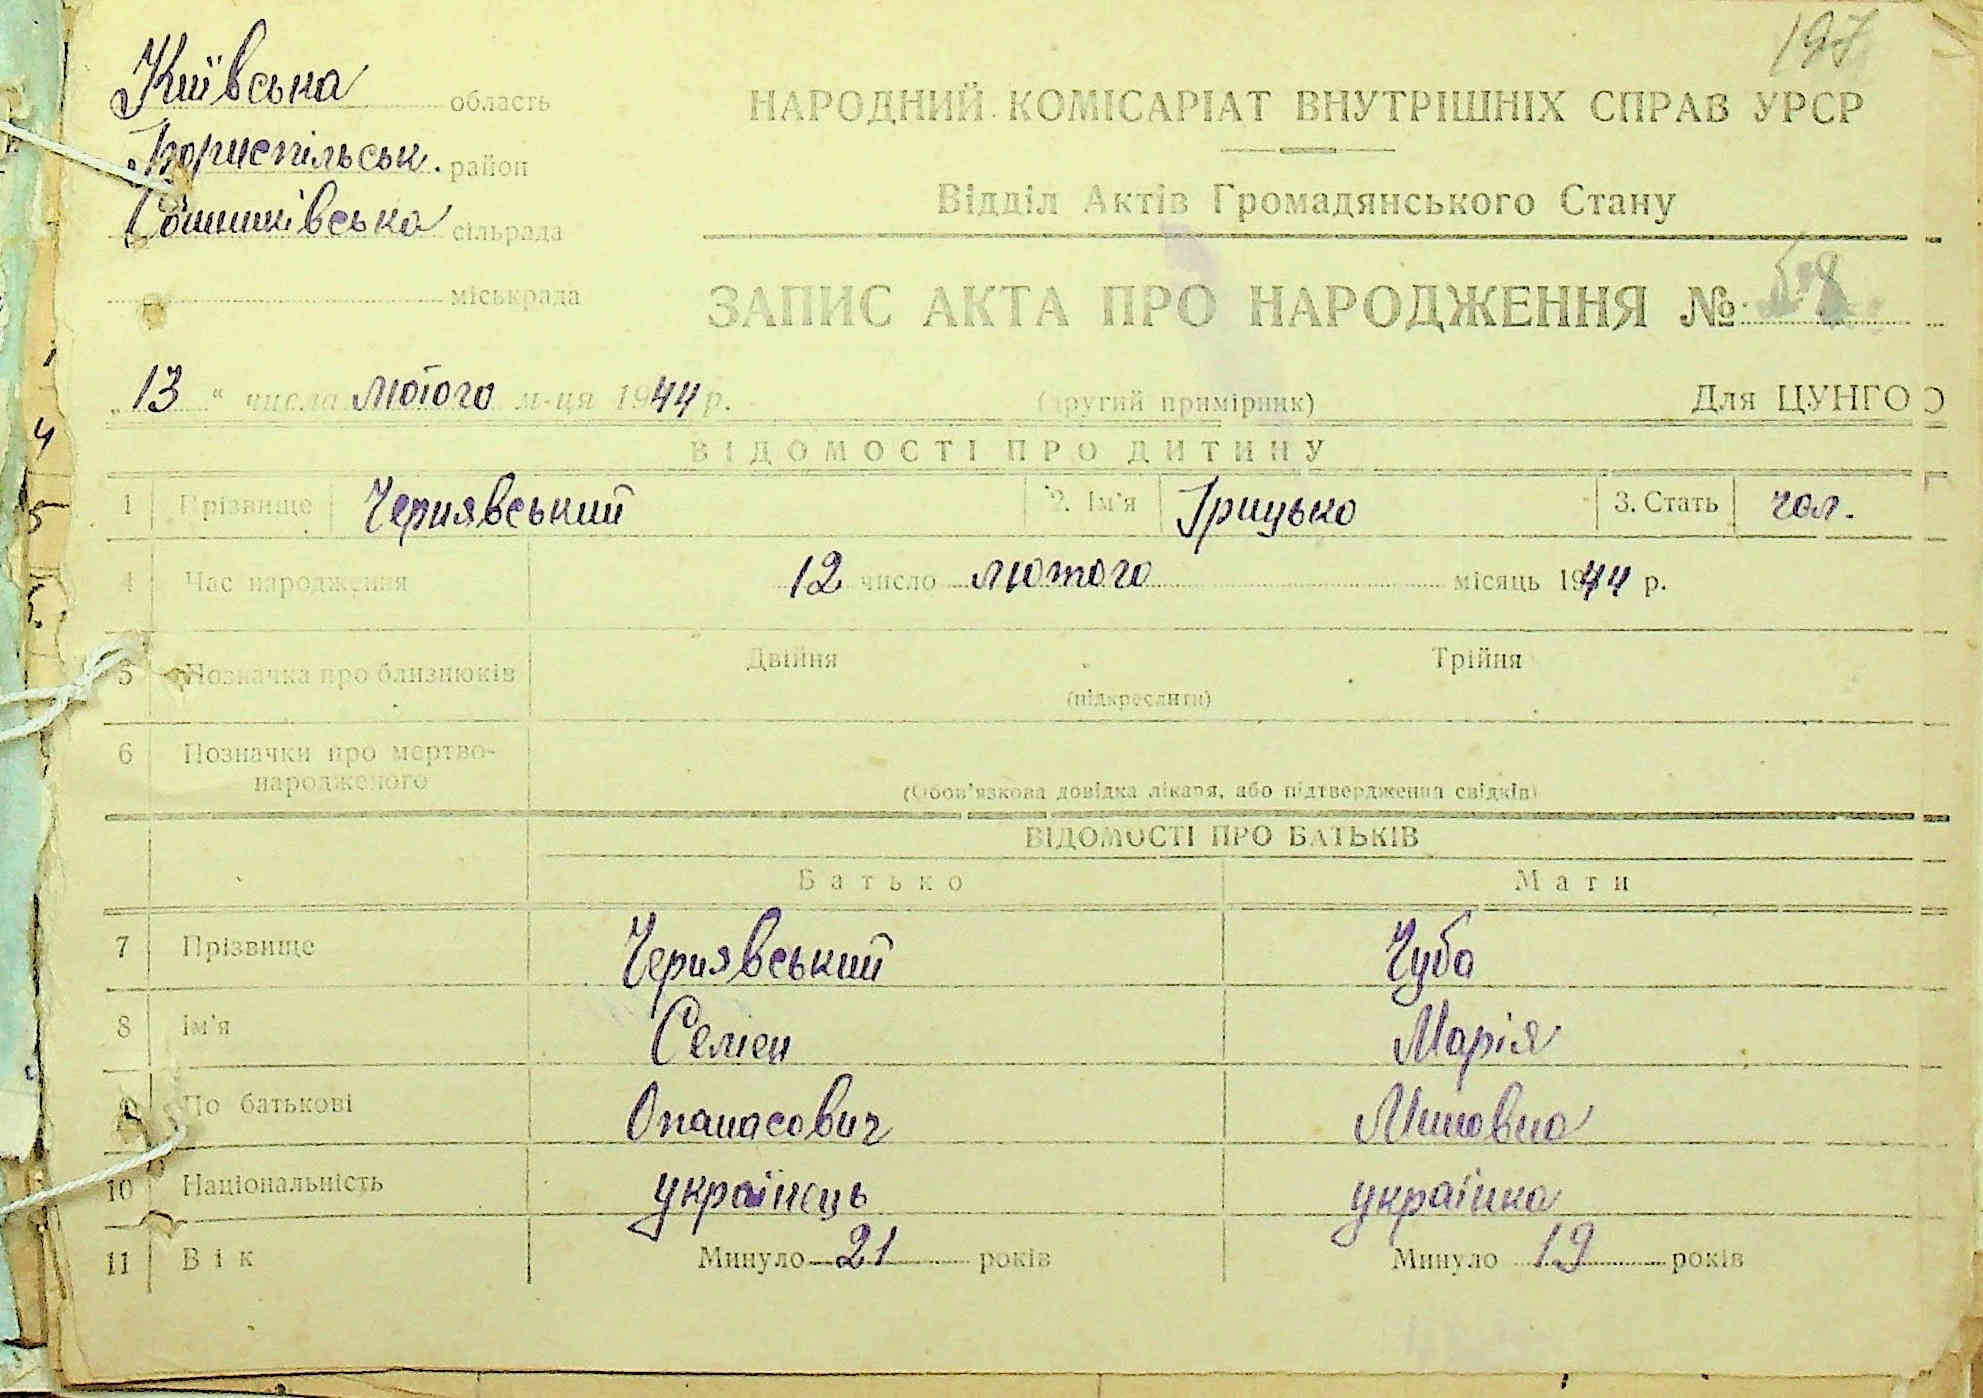 197
Київська область
Бориспільськ. район
сільрада
міськрада
НАРОДНИЙ КОМІСАРІАТ ВНУТРІШНІХ СПРАВ УРСР
Відділ Актів Громадянського Стану
ЗАПИС АКТА ПРО НАРОДЖЕННЯ № 58
„13" числа лютого м-ця 1944 р. (другий примірник) Для ЦУНГО
ВІДОМОСТІ ПРО ДИТИНУ
1 Прізвище Чернявський 2. Ім'я Грицько 3. Стать чол.
4 Час народження 12 число лютого місяць 1944 р.
5 Позначка про близнюків Двійня Трійня
(підкреслити)
6 Позначки про мертво-
народженого
(Обов'язкова довідка лікаря, або підтвердження свідків)
ВІДОМОСТІ ПРО БАТЬКІВ
Батько Мати
7 Прізвище Чернявський Чуба
8 Ім'я Семен Марія
9 По батькові Опанасович
10 Національність українець українка
11 Вік Минуло 21 років Минуло 19 років